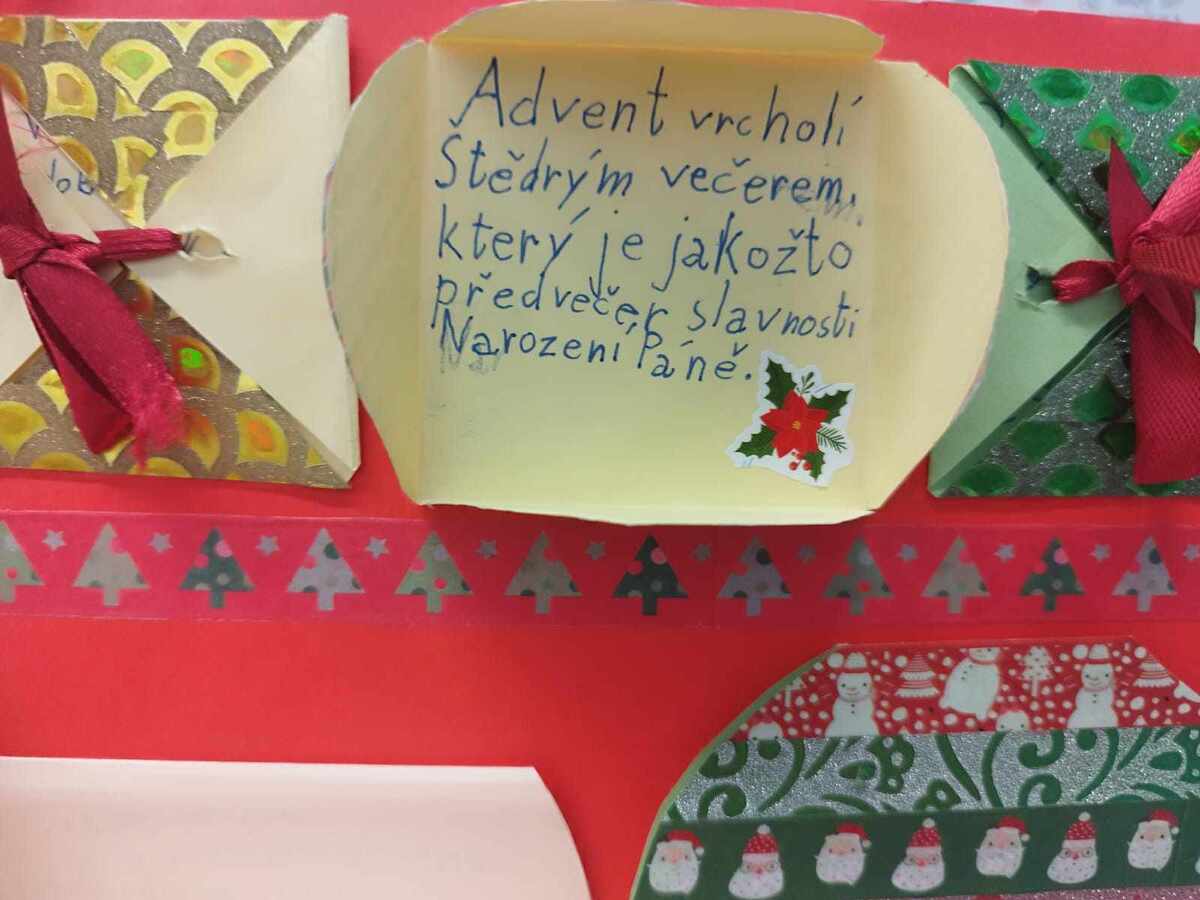 Advent vrcholí
Štědrým večerem,
který je jakožto
předvečer slavnosti
Narození Páně.